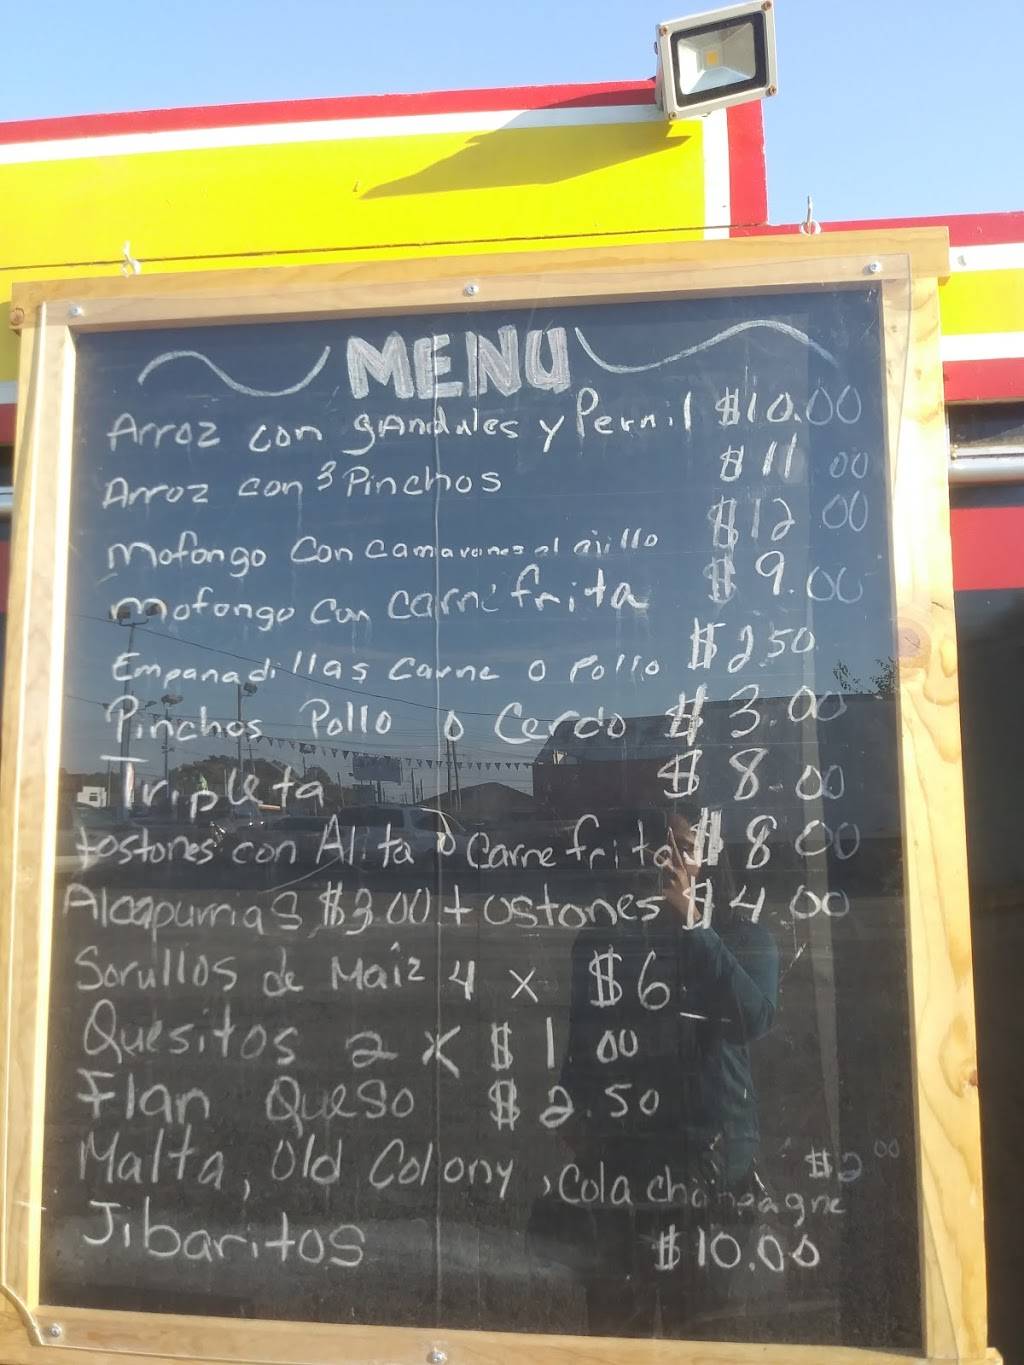 MENU
Arroz con gandules y Pernil $10.00
Arroz con 3 Pinchos $11 00
Mofongo con camarones al ajillo $12 00
Mofongo con carne frita $9.00
Empanadillas carne o pollo $2 50
Pinchos Pollo o Cerdo $3.00
Tripleta $8.00
tostones con Alita o carne frita $8 00
Alcapurrias $3.00 + ostones $4.00
Sorullos de Maiz 4 x $6
Quesitos 2 x $1.00
Flan Queso $2.50
Malta, Old Colony, Cola champagne $2 00
Jibaritos $10.00